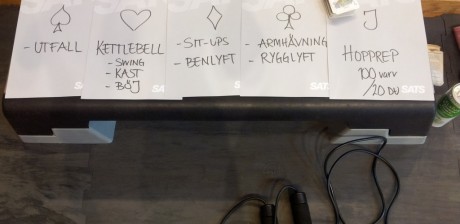 - UTFALL
KETTLEBELL
- SWING
- KAST
- BÖJ
SATS
- SIT-UPS
- BENLYFT
- ARMHÄVNING
- RYGGLYFT
SATS
J
HOPPREP
100 varv
/20 DU
SATS